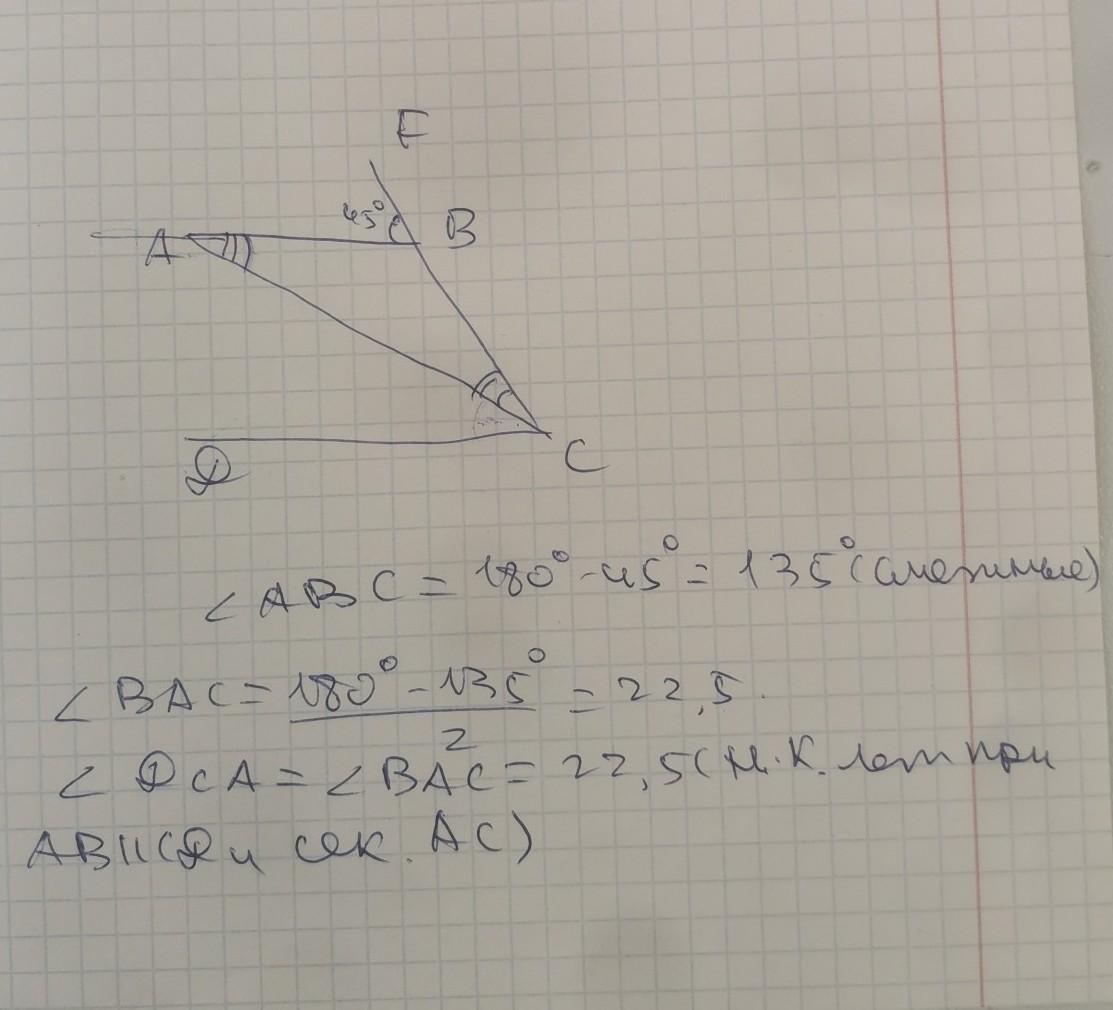 F
45°
A
B
D
C
∠ABC = 180° - 45° = 135° (смежные)
∠BAC = 180° - 135° / 2 = 22,5.
∠DCA = ∠BAC = 22,5 (н.к. леж при
AB॥CD и сек. AC)